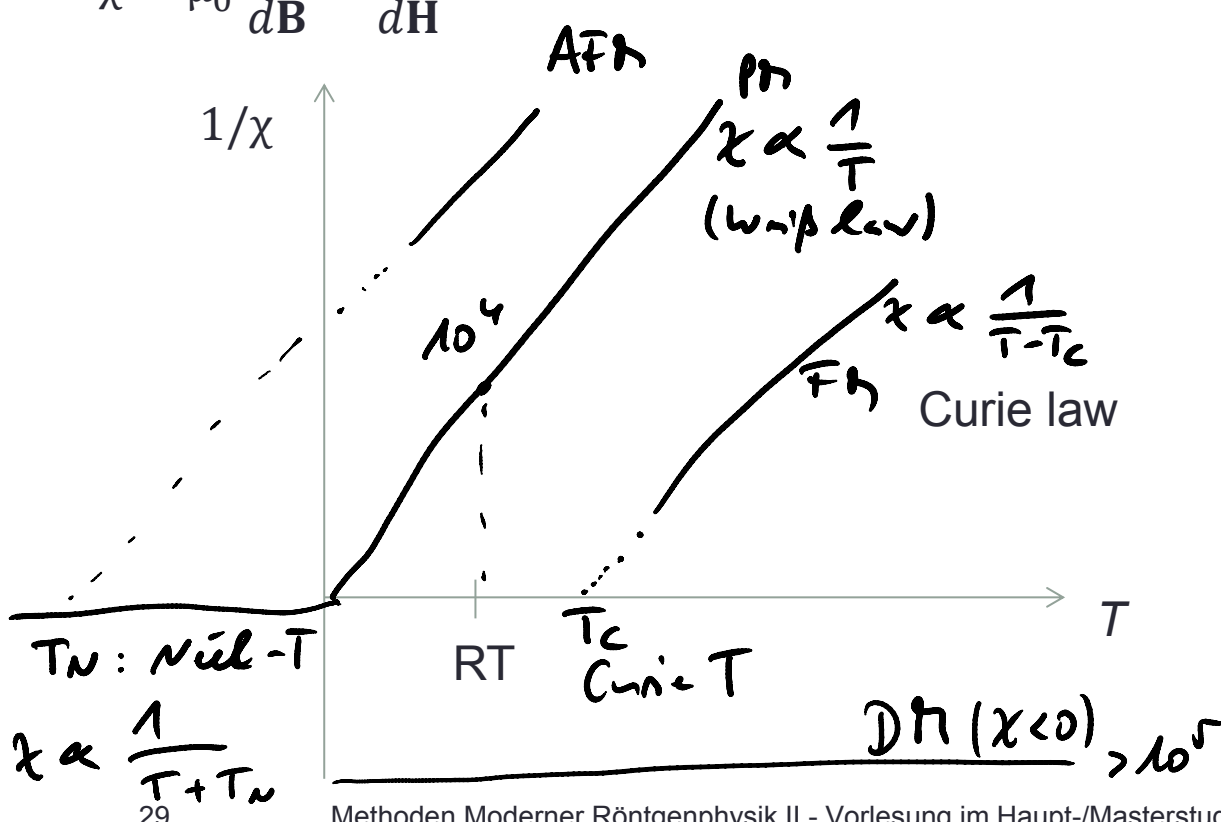 χ μ₀ dB dH
AFM
PM
1/χ
χ ∝ 1/T
(Weiß law)
10⁴
χ ∝ 1/(T-T_C)
FM
Curie law
T
T_N : Néél-T
RT
T_C
Curie T
χ ∝ 1/(T+T_N)
DM (χ<0) >10⁵
29 Methoden Moderner Röntgenphysik II - Vorlesung im Haupt-/Masterstud